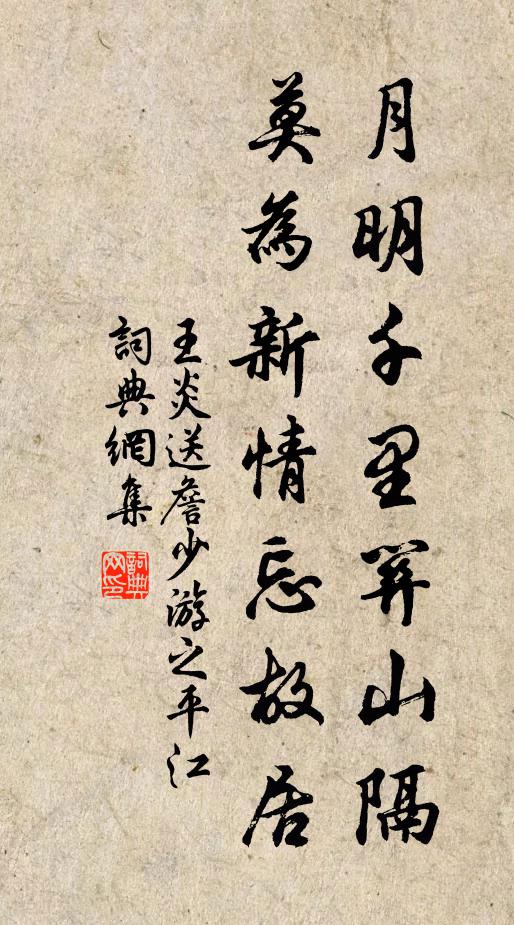 月明千里關山隔
莫為新情忘故居
王炎送詹少游之平江
詞典網集
詞典网印